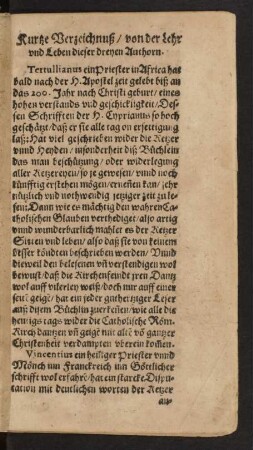 Kurtze Verzeichnuß / von der Lehr
vnd Leben dieser dreyen Authorn.
Tertullianus ein Priester in Africa hat
bald nach der H. Apostel zeit gelebt biß an
das 200. Jahr nach Christi geburt / eines
hohen verstands vnd geschickligkeit / Des-
sen Schrifften der H. Cyprianus so hoch
geschätzt / daß er sie alle tag on ersettigung
laß: Hat viel geschrieben wider die Ketzer
vnd Heyden / insonderheit diß Büchlein
das man beschützung / oder widerlegung
aller Ketzereyen / so je gewesen / vnnd noch
künfftig erstehen mögen / nennen kan / sehr
nützlich vnd nothwendig jetziger zeit zu le-
sen: Dann wie es mächtig den wahren Ca-
tholischen Glauben verthediget / also artig
vnnd wunderbarlich mahlet es der Ketzer
Sitten vnd leben / also daß sie von keinem
besser köndten beschrieben werden / Vnnd
dieweil den belesenen vñ verstendigen wol
bewust / daß die Kirchenfeindt jren Dantz
wol auff vilerley weiß / doch nur auff einer
seiten geigē / hat ein jeder guthertziger Leser
auß disem Büchlin zuerkeñen / wie alle die
heutigs tags wider die Catholische Röm.
Kirch dantzen vñ geigē mit allē võ gantzer
Christenheit verdampten vberein kom̃en.
Vincentius ein heiliger Priester vnnd
Mönch inn Franckreich inn Göttlicher
schrifft wol erfahrē / hat ein starcke Dispu-
tation mit deutlichen worten der Ketzer